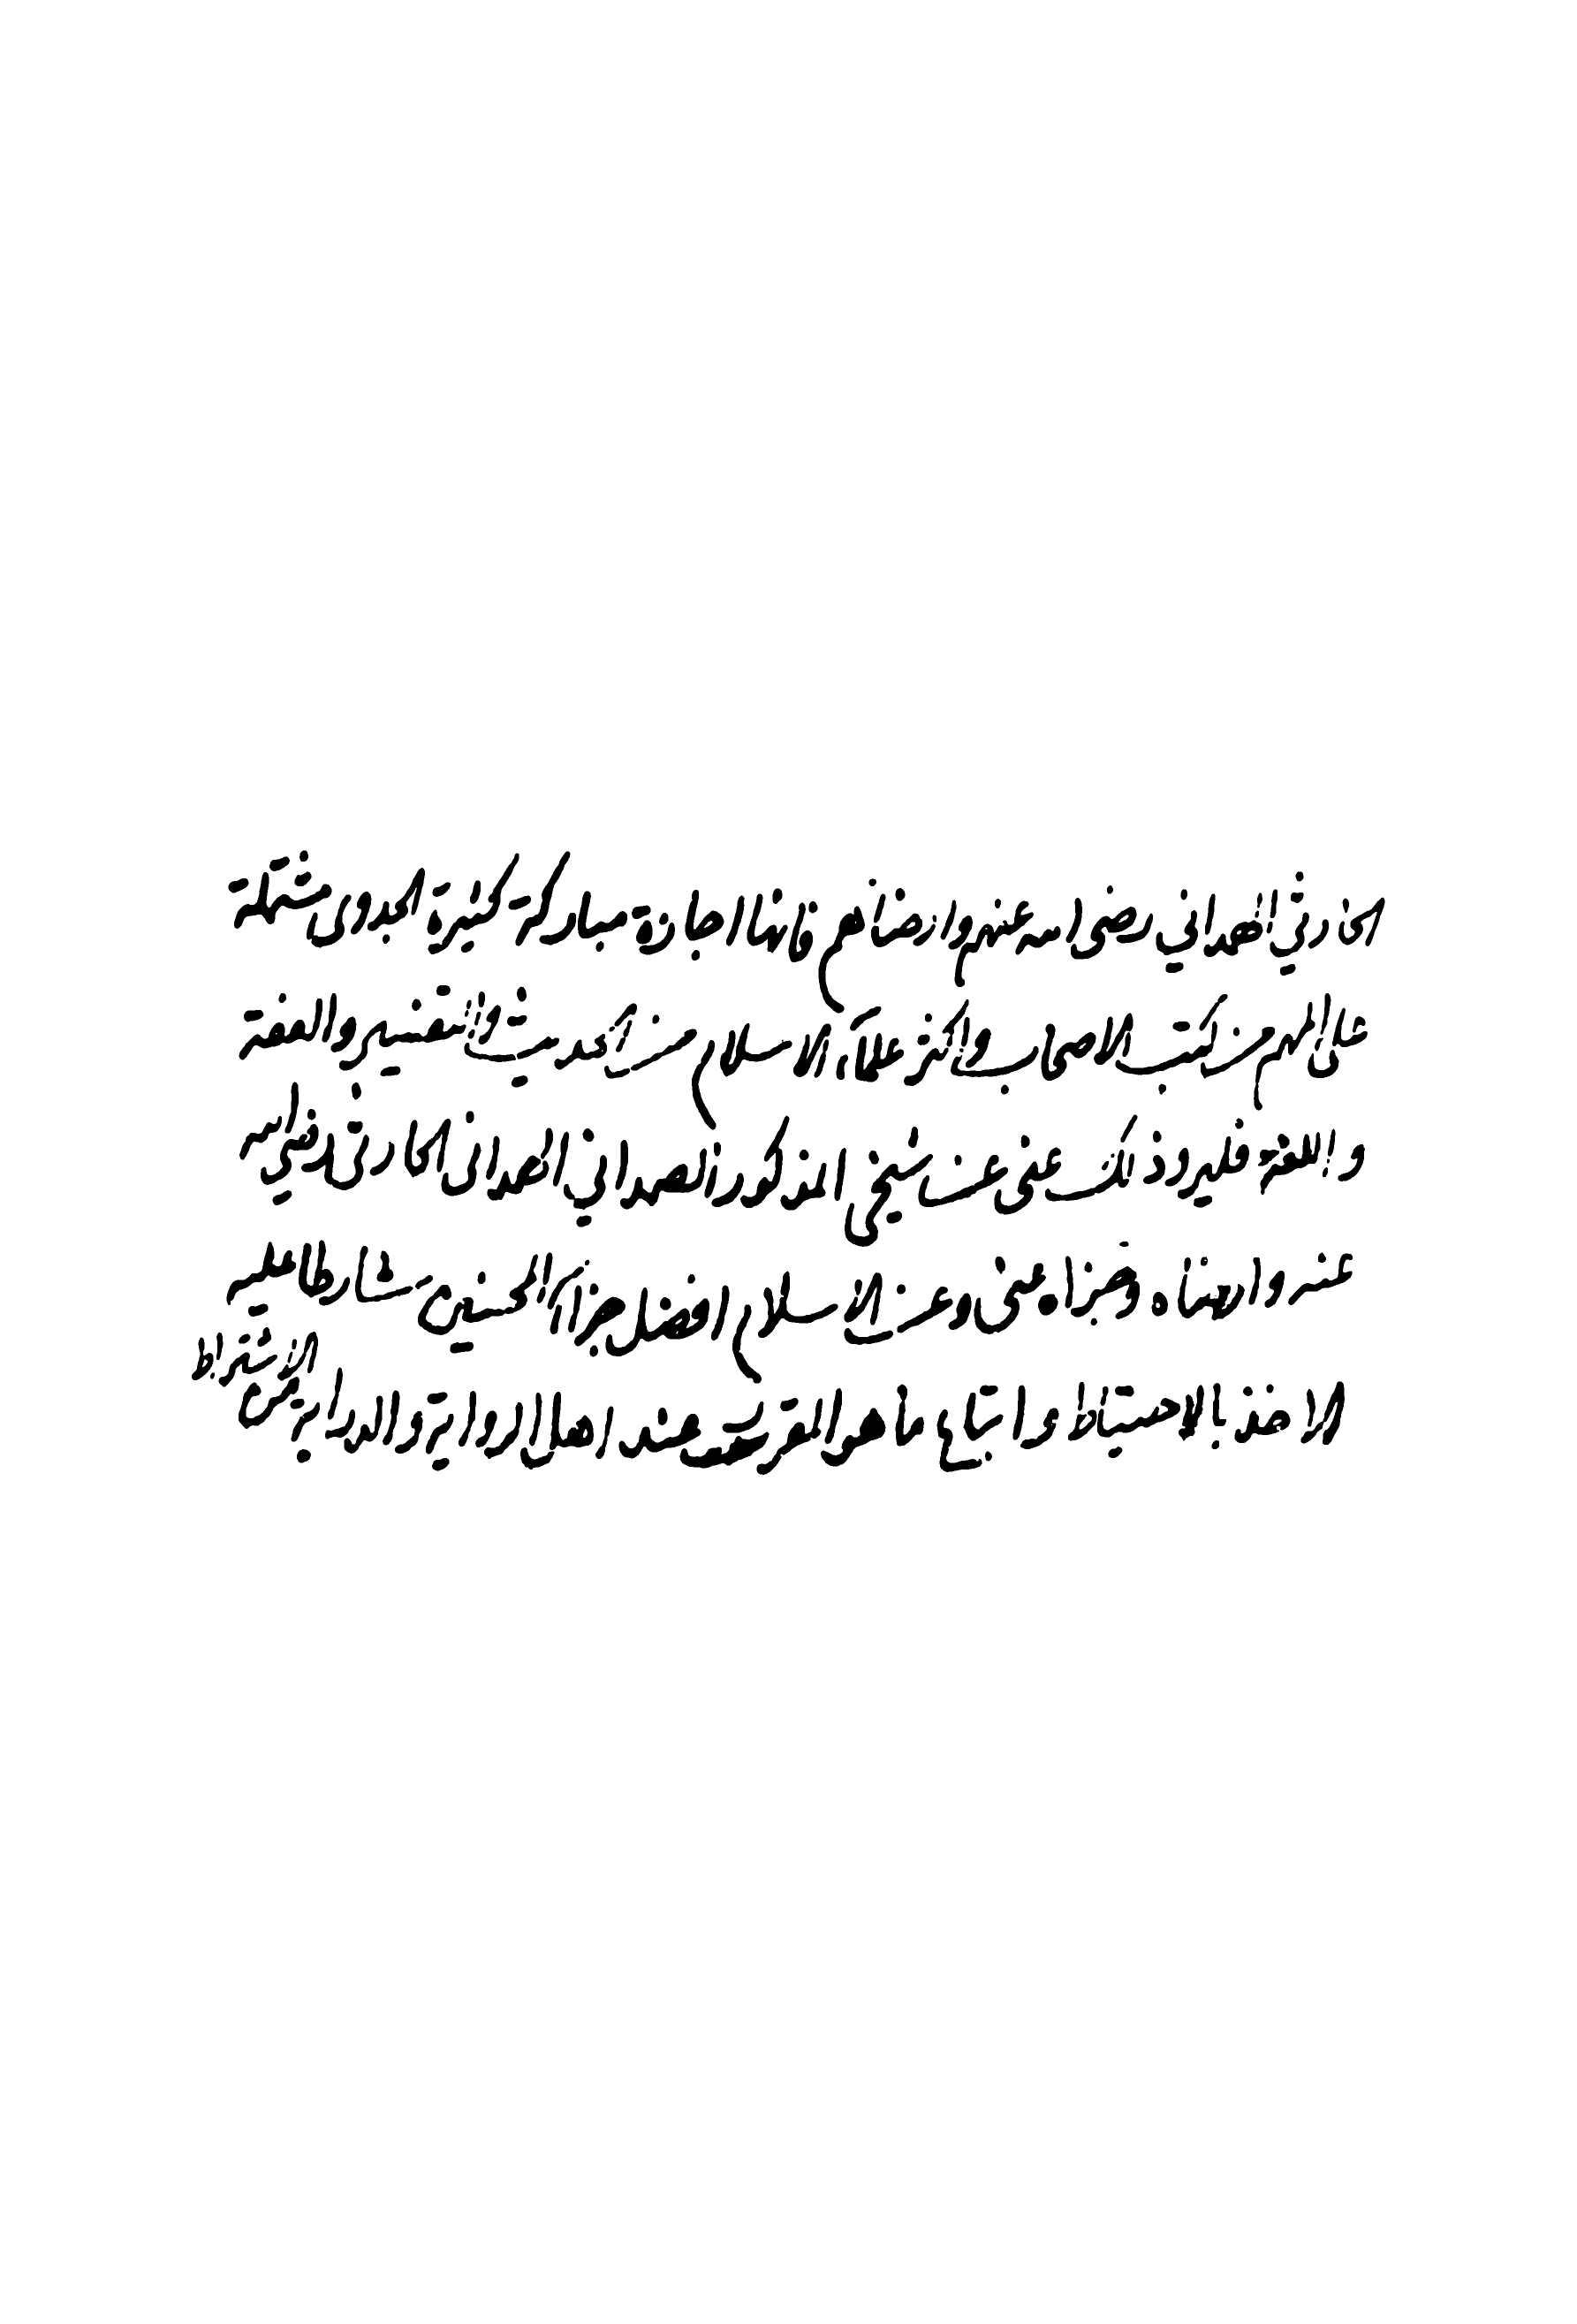 الحارثي الهمداني رضى الله عنهم وارضاهم فانها اجازة مباركة كثيرة الجدوى مشتملة
على المهم من كتب الاصحاب واكثر علماء الاسلام من الحديث والتفسير والفقه
واللغة فليرو ذلك عني عن شيخي المذكور الصمداني الهمداني الحارثي رضي الله
عنه وارضاه وجزاه عني وعن الاسلام افضل جزاء المحسنين شارطا عليه
الاخذ بالاحتياط واتباع ما هو المقرر عند اهل الرواية والدراية من
الاشتراط